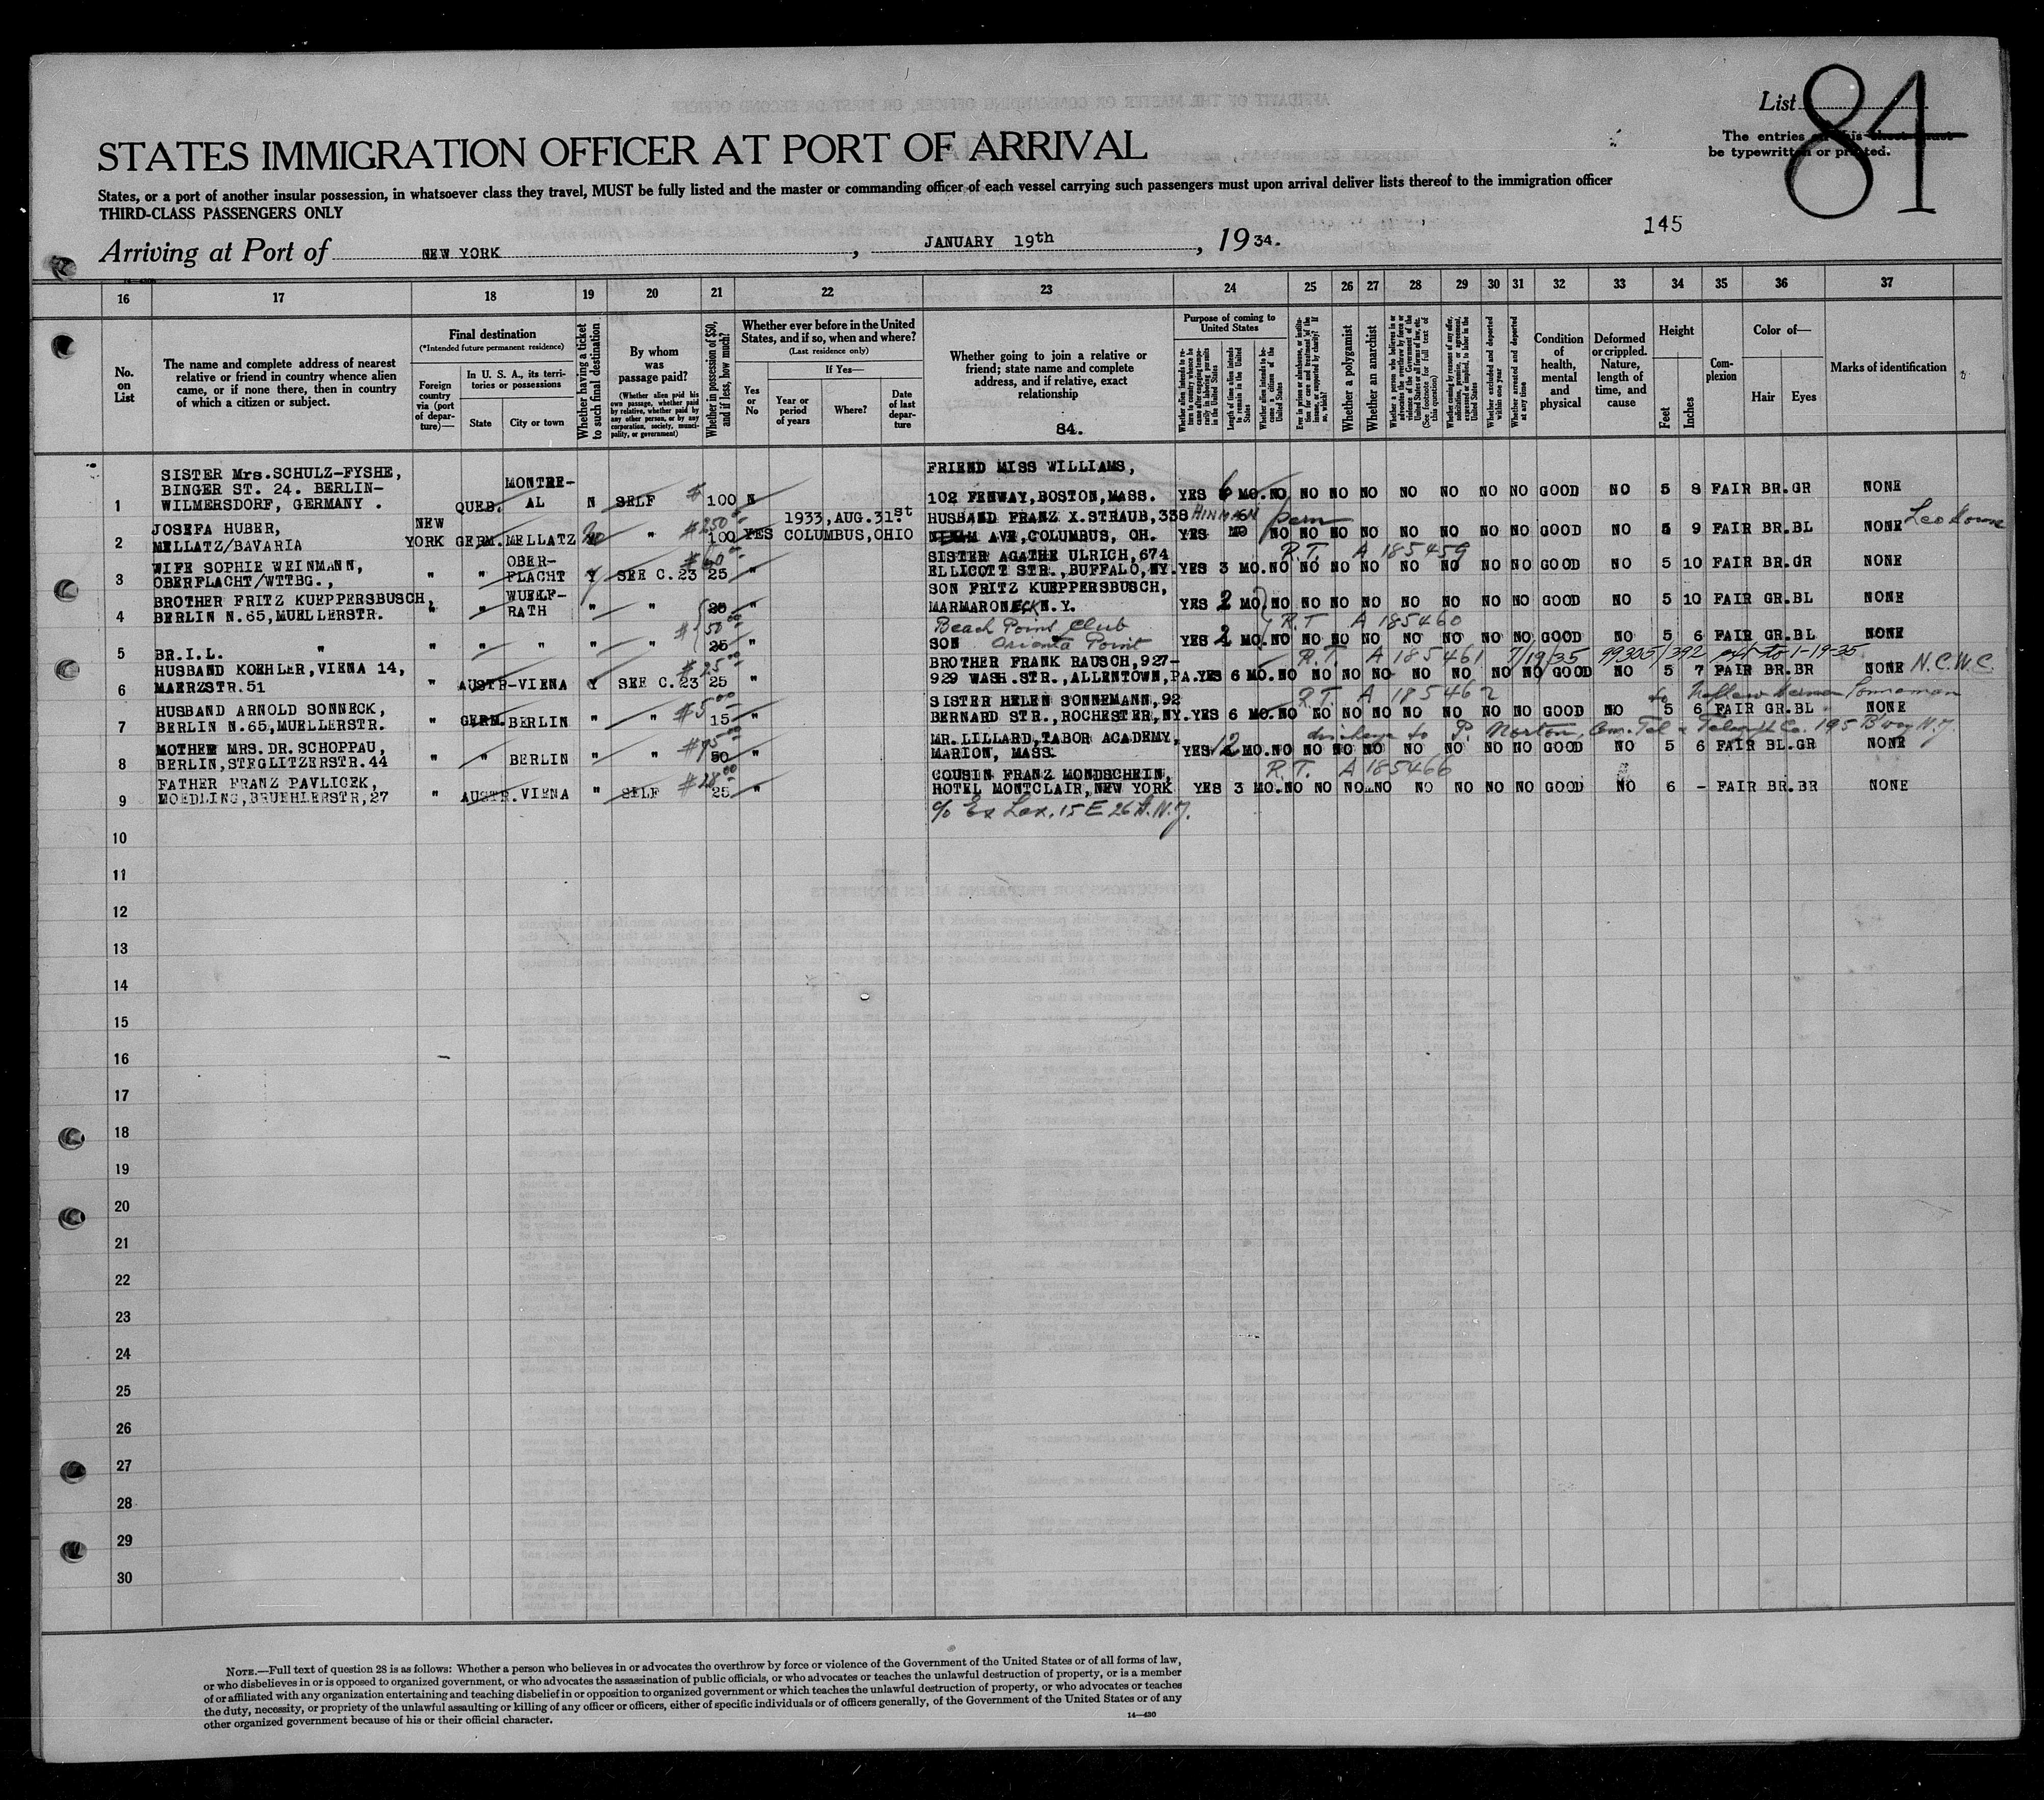 List 84
The entries on this sheet must
be typewritten or printed.
STATES IMMIGRATION OFFICER AT PORT OF ARRIVAL
States, or a port of another insular possession, in whatsoever class they travel, MUST be fully listed and the master or commanding officer of each vessel carrying such passengers must upon arrival deliver lists thereof to the immigration officer
THIRD-CLASS PASSENGERS ONLY
145
Arriving at Port of NEW YORK, JANUARY 19th, 1934.
16 17 18 19 20 21 22 23 24 25 26 27 28 29 30 31 32 33 34 35 36 37
No. on List
The name and complete address of nearest relative or friend in country whence alien came, or if none there, then in country of which a citizen or subject.
Final destination
(*Intended future permanent residence)
Foreign country via (port of departure)—
In U. S. A., its territories or possessions
State
City or town
Whether having a ticket to such final destination
By whom was passage paid?
(Whether alien paid his own passage, whether paid by relative, whether paid by any other person, or by any corporation, society, municipality, or government)
Whether in possession of $50, and if less, how much?
Whether ever before in the United States, and if so, when and where?
(Last residence only)
Yes or No
If Yes—
Year or period of years
Where?
Date of last departure
Whether going to join a relative or friend; state name and complete address, and if relative, exact relationship
84.
Purpose of coming to United States
Whether alien intends to return to country whence he came after engaging temporarily in laboring pursuits in the United States
Length of time alien intends to remain in the United States
Whether alien intends to become a citizen of the United States
Ever in prison or almshouse, or institution for care and treatment of the insane, or supported by charity? If so, which?
Whether a polygamist
Whether an anarchist
Whether a person who believes in or advocates the overthrow by force or violence of the Government of the United States or all forms of law, etc. (See footnote for full text of this question)
Whether coming by reason of any offer, solicitation, promise, or agreement, expressed or implied, to labor in the United States
Whether excluded and deported within one year
Whether arrested and deported at any time
Condition of health, mental and physical
Deformed or crippled. Nature, length of time, and cause
Height
Feet
Inches
Complexion
Color of—
Hair
Eyes
Marks of identification
SISTER Mrs.SCHULZ-FYSHE, MONTRE- FRIEND MISS WILLIAMS,
BINGER ST. 24. BERLIN-
1 WILMERSDORF, GERMANY . QUEB. AL N SELF $ 100 N 102 FENWAY,BOSTON,MASS. YES 6 MO.NO NO NO NO NO NO NO NO GOOD NO 5 8 FAIR BR.GR NONE
JOSEFA HUBER, NEW $250 1933,AUG.31st HUSBAND FRANZ X.STRAUB,338 HINMAN 6 perm
2 MELLATZ/BAVARIA YORK GERM. MELLATZ No " 100 YES COLUMBUS,OHIO AVE,COLUMBUS, OH. YES MO NO NO NO NO NO NO NO NO GOOD NO 5 9 FAIR BR.BL NONE Leo House
WIFE SOPHIE WEINMANN, OBER- $60 SISTER AGATHE ULRICH,674 R.T. A 185459
3 OBERFLACHT/WTTBG., " " FLACHT Y SEE C.23 25 " ELLICOTT STR.,BUFFALO,NY. YES 3 MO.NO NO NO NO NO NO NO NO GOOD NO 5 10 FAIR BR.GR NONE
BROTHER FRITZ KUEPPERSBUSCH, WUELF- SON FRITZ KUEPPERSBUSCH,
4 BERLIN N.65,MUELLERSTR. " " RATH " " 25 " MARMARONECK N.Y. YES 2 MO.NO NO NO NO NO NO NO NO GOOD NO 5 10 FAIR GR.BL NONE
$50 Beach Point Club R.T A 185460
5 BR.I.L. " " " " " " 25 " SON Orienta Point YES 2 MO.NO NO NO NO NO NO NO NO GOOD NO 5 6 FAIR GR.BL NONE
HUSBAND KOEHLER,VIENA 14, $25 BROTHER FRANK RAUSCH,927- R.T. A 185461 7/19/35 99305/392 ext to 1-19-35
6 MAERZSTR.51 " AUSTR-VIENA Y SEE C.23 25 " 929 WASH.STR.,ALLENTOWN,PA. YES 6 MO.NO NO NO NO NO NO NO NO GOOD NO 5 7 FAIR BR.BR NONE N.C.W.C.
HUSBAND ARNOLD SONNECK, $5 SISTER HELEN SONNEMANN,92 R.T. A 185462 to Nephew Herman Sonneman
7 BERLIN N.65,MUELLERSTR. " GERM. BERLIN " " 15 " BERNARD STR.,ROCHESTER,NY. YES 6 MO.NO NO NO NO NO NO NO NO GOOD NO 5 6 FAIR GR.BL NONE
MOTHER MRS.DR.SCHOPPAU, $75 MR.LILLARD,TABOR ACADEMY, discharge to P Norton, Am. Tel & Telegh Co. 195 B'way N.Y.
8 BERLIN,STEGLITZERSTR.44 " " BERLIN " " 50 " MARION, MASS. YES 12 MO.NO NO NO NO NO NO NO NO GOOD NO 5 6 FAIR BL.GR NONE
FATHER FRANZ PAVLICEK, $28 COUSIN FRANZ MONDSCHEIN, R.T. A 185466
9 MOEDLING,BRUEHLERSTR,27 " AUSTR. VIENA " SELF 25 " HOTEL MONTCLAIR,NEW YORK YES 3 MO.NO NO NO NO NO NO NO NO GOOD NO 6 - FAIR BR.BR NONE
c/o Ex Lax. 15 E 26 St. N.Y.
10
11
12
13
14
15
16
17
18
19
20
21
22
23
24
25
26
27
28
29
30
NOTE.—Full text of question 28 is as follows: Whether a person who believes in or advocates the overthrow by force or violence of the Government of the United States or of all forms of law,
or who disbelieves in or is opposed to organized government, or who advocates the assassination of public officials, or who advocates or teaches the unlawful destruction of property, or is a member
of or affiliated with any organization entertaining and teaching disbelief in or opposition to organized government or which teaches the unlawful destruction of property, or who advocates or teaches
the duty, necessity, or propriety of the unlawful assaulting or killing of any officer or officers, either of specific individuals or of officers generally, of the Government of the United States or of any
other organized government because of his or their official character.
14—430